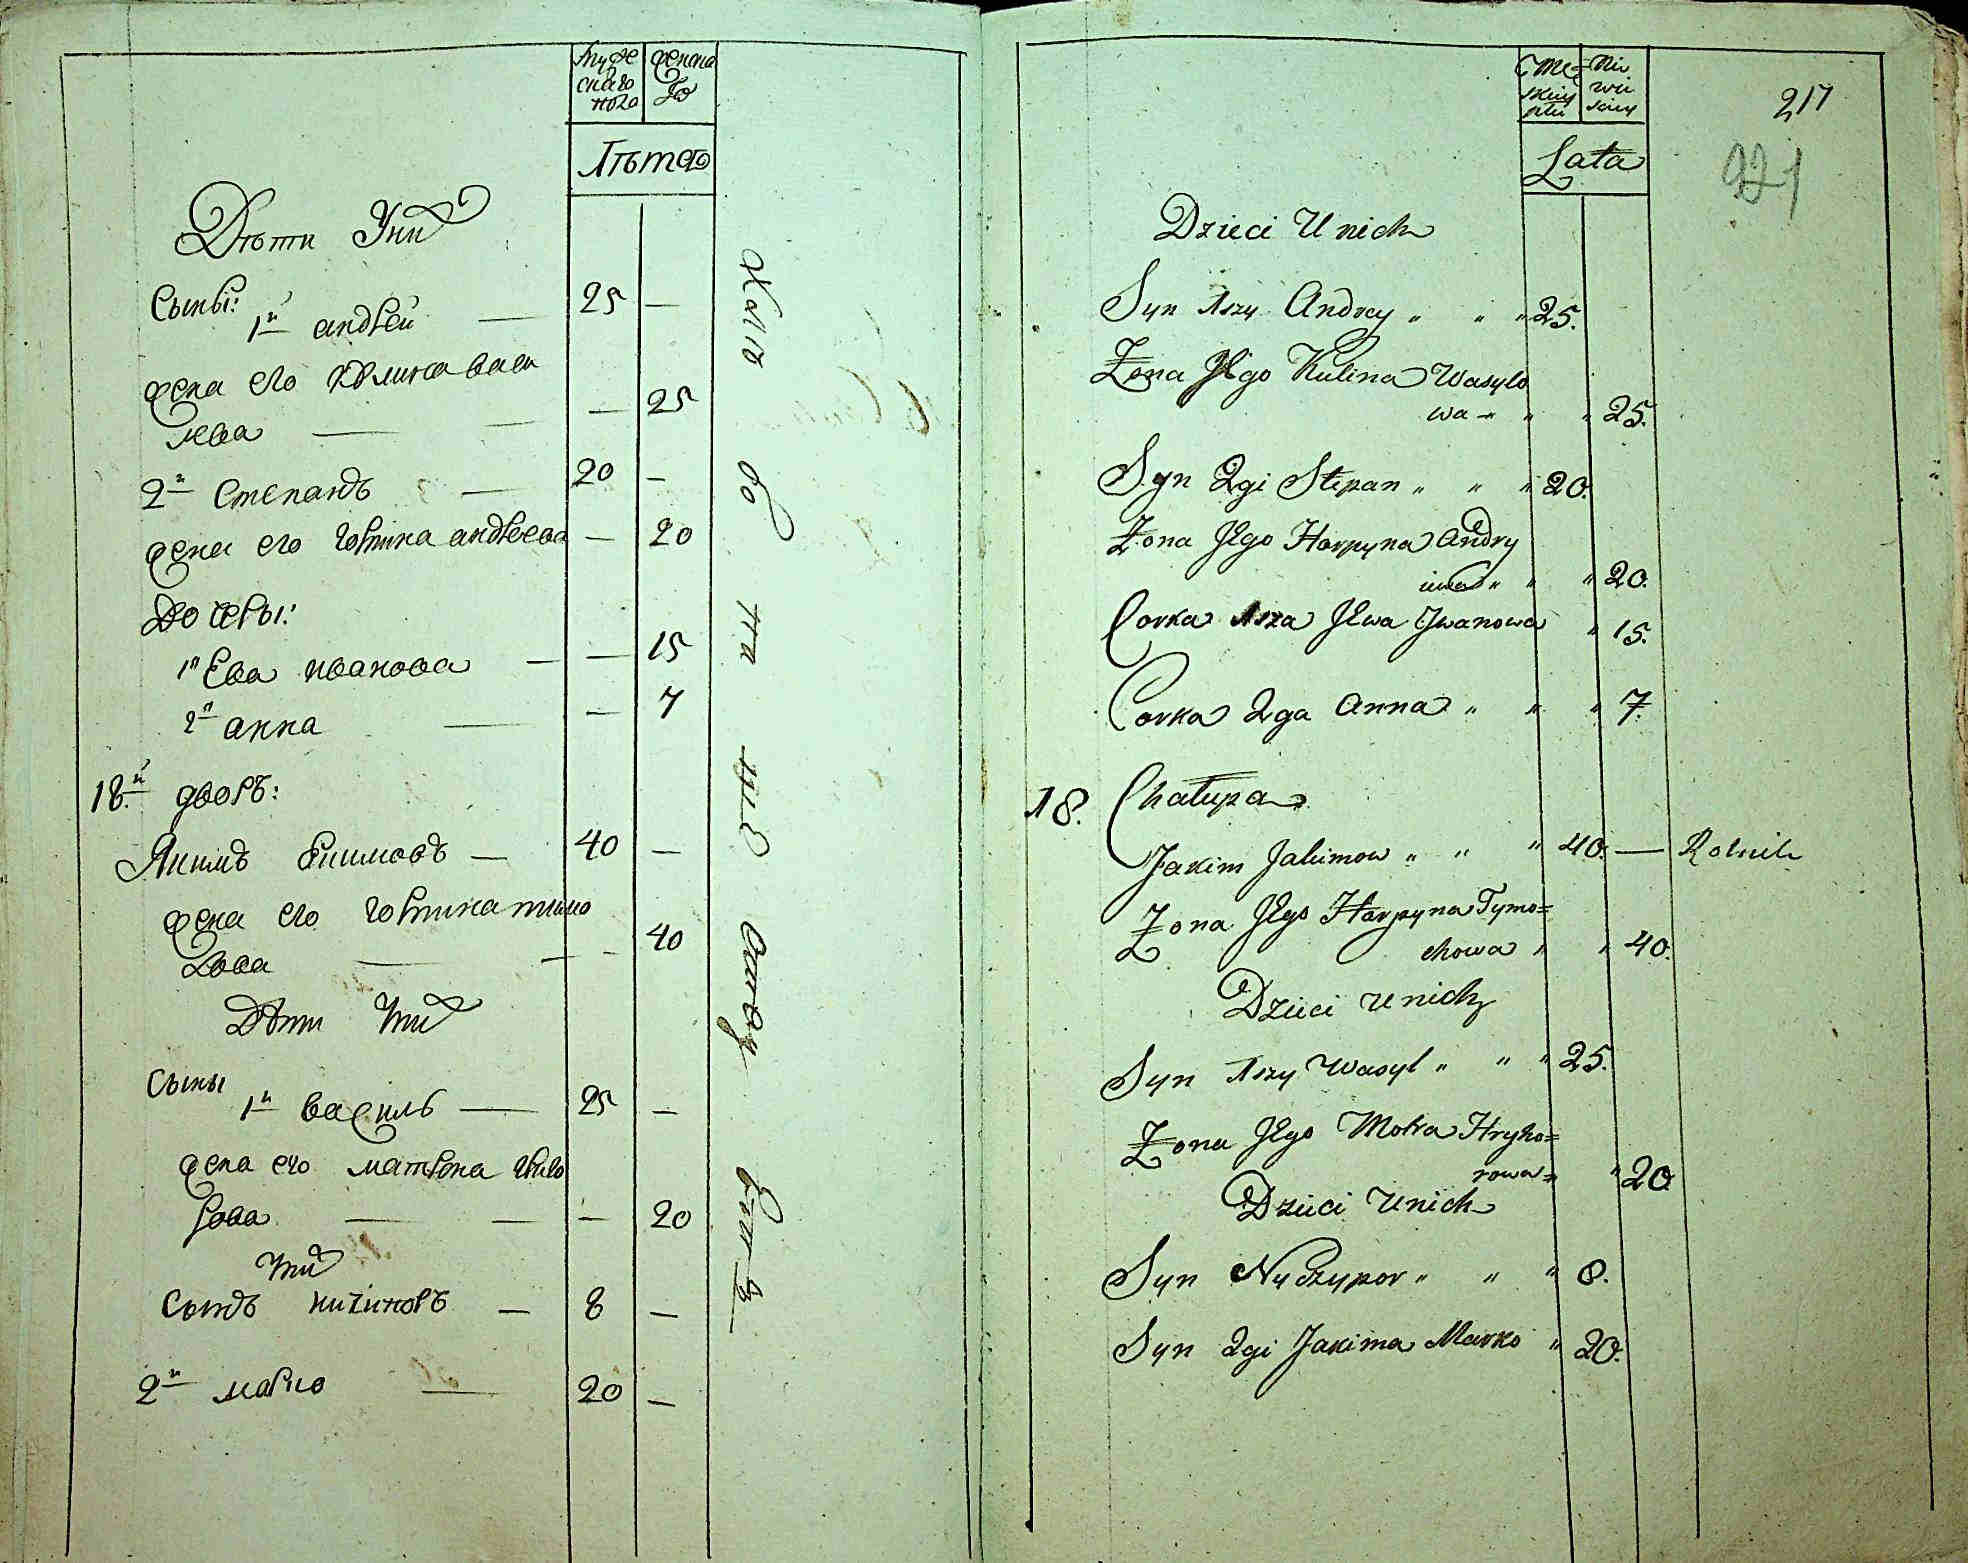 муже
скаго
пола
женска
го
Лѣта
Дѣти Ихъ
Сыны:
1й андрей — 25 —
жена его Кулина васи
лева — — — 25
2й Степанъ — 20 —
жена его горпина андреева — 20
Дочеры:
1я Ева иванова — — 15
2я анна — — 7
18й дворъ:
Якимъ Якимовъ — 40 —
жена его горпина тимо
хова — — — 40
Дѣти ихъ
Сыны
1й василь — 25 —
жена его матрона григо
рова — — — 20
ихъ
Сынъ ничипоръ — 8 —
2й марко — 20 —
Męz
skiey
płci
Nie
wie
sciey
Lata
217
221
Dzieci U nich
Syn 1szy Andrey " " " 25.
Żona Jego Kulina Wasylo
wa " " " 25.
Syn 2gi Stepan " " " 20.
Żona Jego Harpyna Andry
iwa " " " 20.
Corka 1sza Jewa Jwanowa " 15.
Corka 2ga Anna " " " 7.
18. Chałupa
Jakim Jakimow " " " 40. — Rolnik
Żona Jego Harpyna Tymo=
chowa " " 40.
Dzieci u nich
Syn 1szy Wasyl " " " 25.
Żona Jego Motra Hryho=
rowa " 20
Dzieci u nich
Syn Nyczypor " " " 8.
Syn 2gi Jakima Marko " 20.